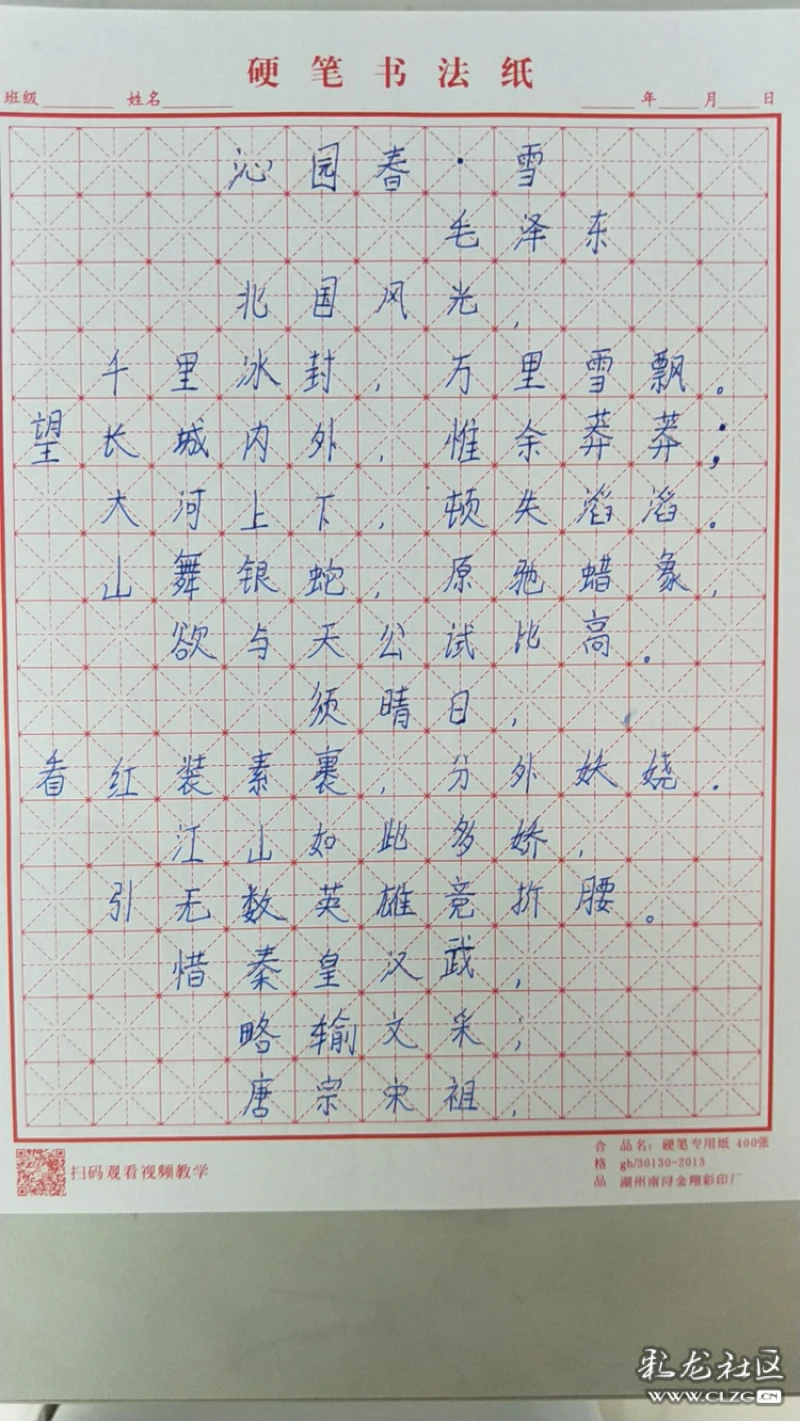 硬笔书法纸
班级 姓名 年 月 日
沁园春·雪
毛泽东
北国风光,
千里冰封,万里雪飘。
望长城内外,惟余莽莽;
大河上下,顿失滔滔。
山舞银蛇,原驰蜡象,
欲与天公试比高。
须晴日,
看红装素裹,分外妖娆.
江山如此多娇,
引无数英雄竞折腰。
惜秦皇汉武,
略输文采;
唐宗宋祖,
扫码观看视频教学
合格品
品名:硬笔专用纸 400张
gb/30130-2013
湖州南浔金翔彩印厂
彩龙社区
www.CLZG.CN